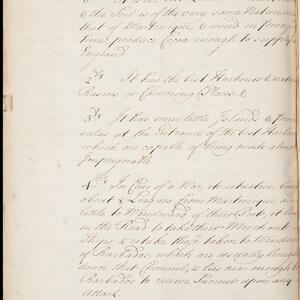 & the Soil is of the very same Nature
that of Martinique, & would in proper
time produce Cocoa enough to supply
England
2dly It has the best Harbours &
Basons or Careening Places &
3dly It has some little Islands &
at the Entrance of the best Harbour
which are capable of being made almost
Impregnable.
4thly In Case of a War, its situation being
about 8 Leagues from Martinique, an
little to Windward of their Port, it
in the Road to take their Merchant
Ships & retake those taken to Windward
of Barbados, which are usually brought
down that Channel, & lies near enough to
Barbados to receive Succour upon any
Attack.